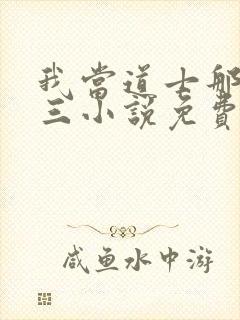 我當道士那
三小說免費
咸魚水中游